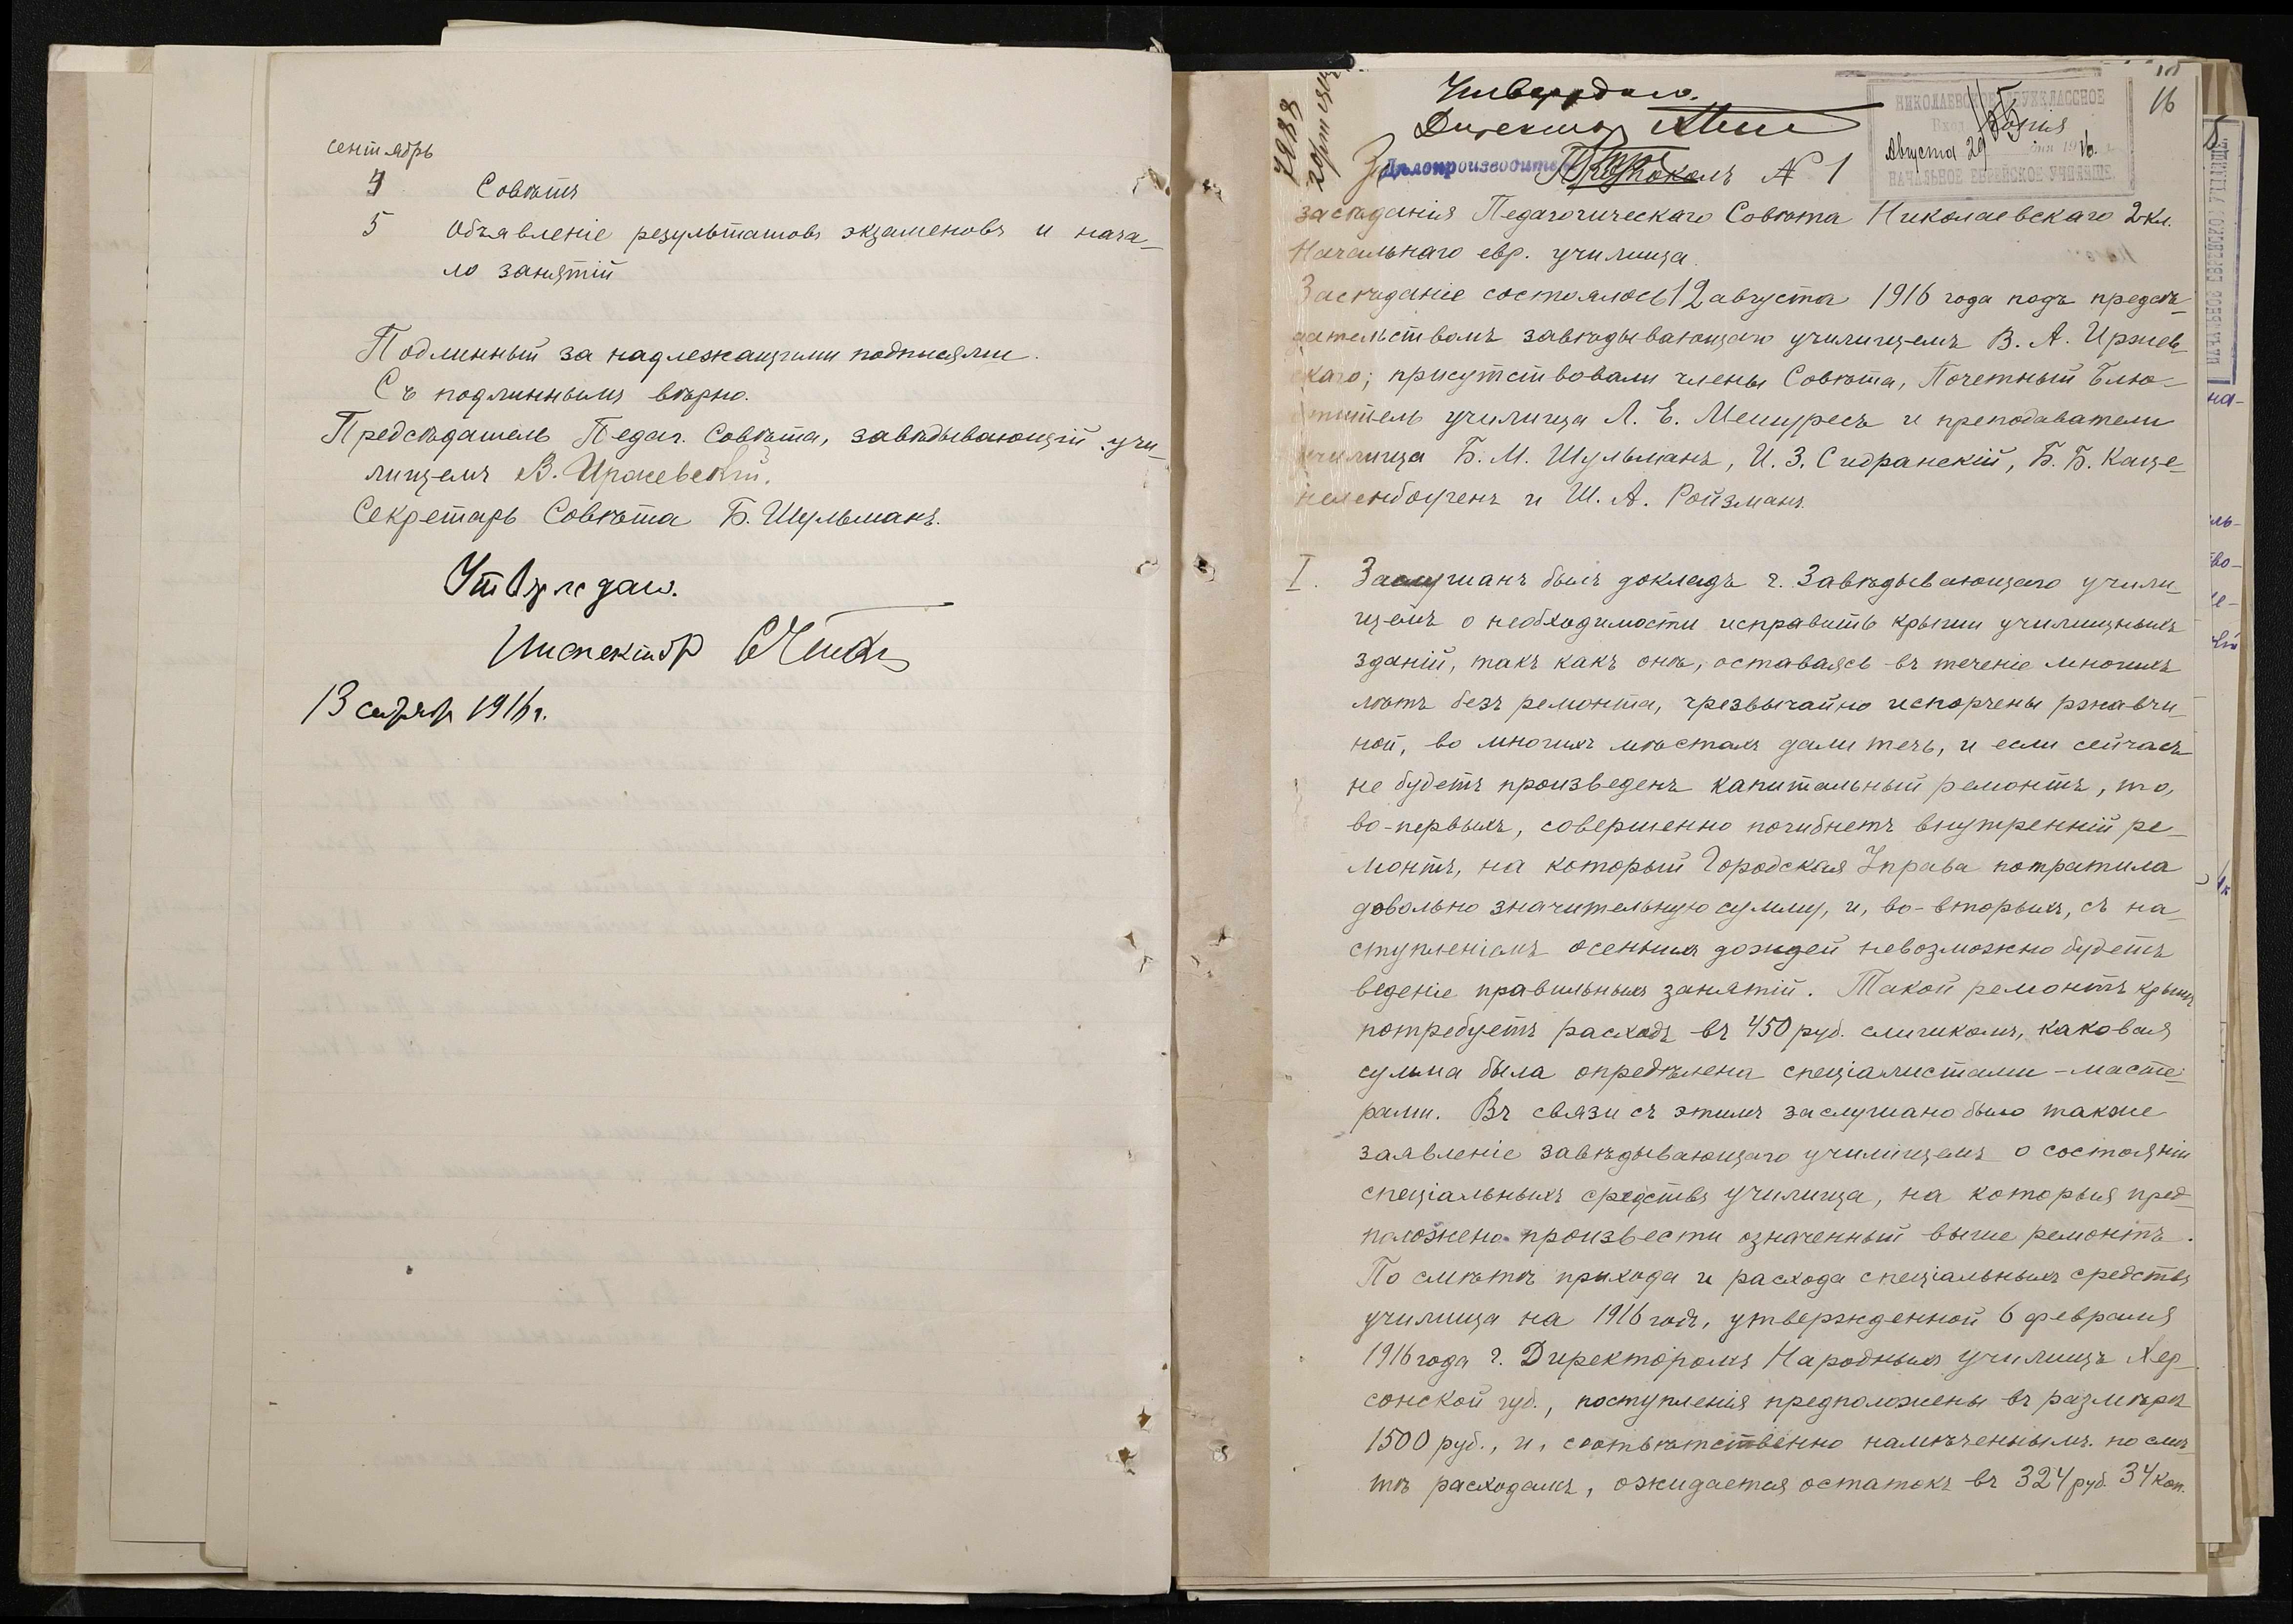 сентябрь
4 Совѣтъ
5 Объявленіе результатовъ экзаменовъ и нача-
ло занятій
Подлинный за надлежащими подписями.
Съ подлиннымъ вѣрно.
Предсѣдатель Педаг. Совѣта, завѣдывающій учи-
лищемъ В. Иржевскій.
Секретарь Совѣта Б. Шульманъ.
Утверждаю.
Инспекторъ
13 сентября 1916 г.
16
Утверждаю.
Директоръ
НИКОЛАЕВСКОЕ ДВУХКЛАССНОЕ
Вход
Августа 29 дня 1916 г.
НАЧАЛЬНОЕ ЕВРЕЙСКОЕ УЧИЛИЩЕ
Копія
7288
За Дѣлопроизводитель
Протоколъ № 1
засѣданія Педагогическаго Совѣта Николаевскаго 2кл.
Начальнаго евр. училища.
Засѣданіе состоялось 12 августа 1916 года подъ предсѣ-
дательствомъ завѣдывающаго училищемъ В. А. Иржев-
скаго; присутствовали члены Совѣта, Почетный Блю-
ститель училища Л. Е. Мешуресъ и преподаватели
училища Б. М. Шульманъ, И. З. Сидранскій, Б. Б. Каце-
неленбоугенъ и Ш. А. Ройзманъ.
I. Заслушанъ былъ докладъ г. Завѣдывающаго учили-
щемъ о необходимости исправить крыши училищныхъ
зданій, такъ какъ онѣ, оставаясь въ теченіе многихъ
лѣтъ безъ ремонта, чрезвычайно испорчены ржавчи-
ной, во многихъ мѣстахъ дали течь, и если сейчасъ
не будетъ произведенъ капитальный ремонтъ, то,
во-первыхъ, совершенно погибнетъ внутренній ре-
монтъ, на который Городская Управа потратила
довольно значительную сумму, и, во-вторыхъ, съ на-
ступленіемъ осеннихъ дождей невозможно будетъ
веденіе правильныхъ занятій. Такой ремонтъ крышъ
потребуетъ расходъ въ 450 руб. слишкомъ, каковая
сумма была опредѣлена спеціалистами-масте-
рами. Въ связи съ этимъ заслушано было также
заявленіе завѣдывающаго училищемъ о состояніи
спеціальныхъ средствъ училища, на которыя пред-
положено произвести означенный выше ремонтъ.
По смѣтѣ прихода и расхода спеціальныхъ средствъ
училища на 1916 годъ, утвержденной 6 февраля
1916 года г. Директоромъ Народныхъ училищъ Хер-
сонской губ., поступленія предположены въ размѣрѣ
1500 руб., и, соотвѣтственно намѣченнымъ по смѣ-
тѣ расходамъ, ожидается остатокъ въ 324 руб. 34 коп.
НАЧАЛЬНОЕ ЕВРЕЙСКОЕ УЧИЛИЩЕ